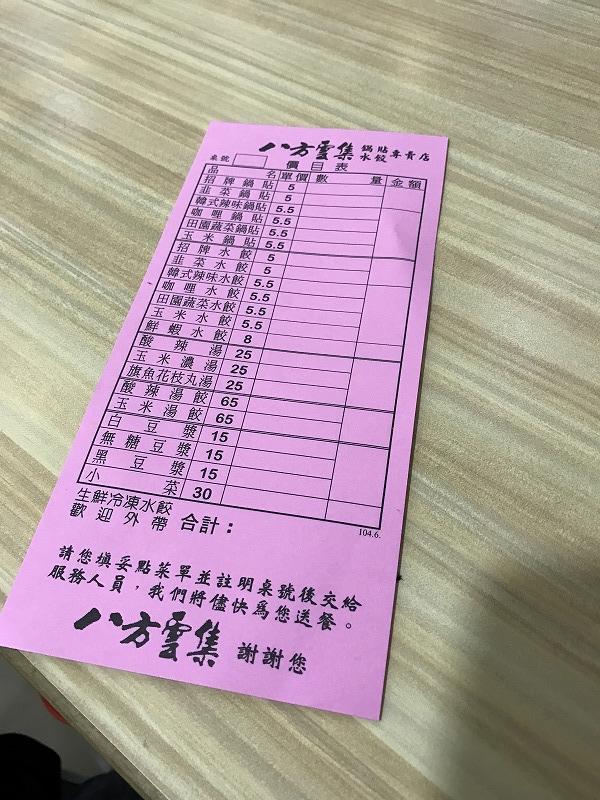 八方雲集 鍋貼水餃專賣店
桌號 價目表
品名 單價 數量 金額
招牌鍋貼 5
韭菜鍋貼 5
韓式辣味鍋貼 5.5
咖哩鍋貼 5.5
田園蔬菜鍋貼 5.5
玉米鍋貼 5.5
招牌水餃 5
韭菜水餃 5
韓式辣味水餃 5.5
咖哩水餃 5.5
田園蔬菜水餃 5.5
玉米水餃 5.5
鮮蝦水餃 8
酸辣湯 25
玉米濃湯 25
旗魚花枝丸湯 25
酸辣湯餃 65
玉米湯餃 65
白豆漿 15
無糖豆漿 15
黑豆漿 15
小菜 30
生鮮冷凍水餃
歡迎外帶 合計：
104.6.
請您填妥點菜單並註明桌號後交給
服務人員，我們將儘快為您送餐。
八方雲集 謝謝您